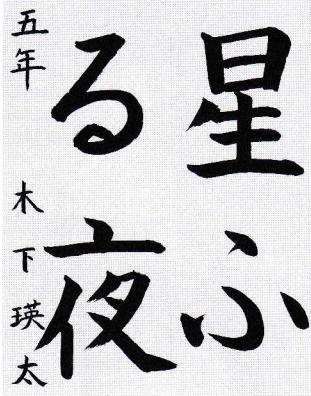 星ふ
る夜
五年 木下瑛太